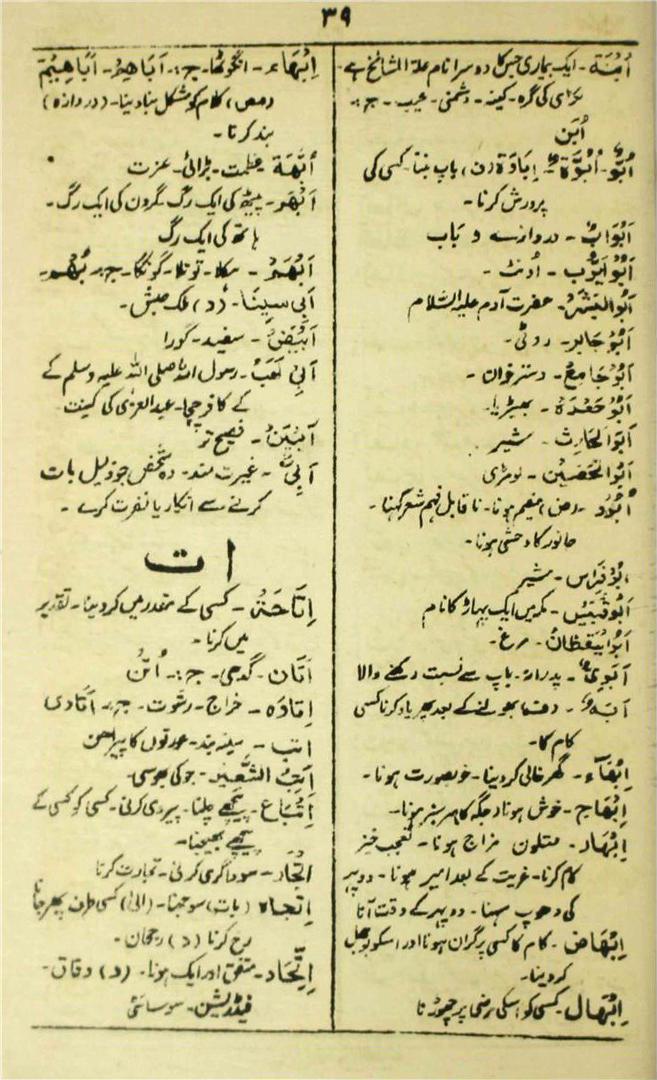 ۳۹
اُبْنَة - ایک بیماری جس کا دوسرا نام علۃ المشائخ ہے -
لکڑی کی گرہ - کینہ - دشمنی - عیب - ج :-
اُبَن
اُبُوّ - اُبُوَّة - اِبَاوَة (ن) باپ بننا - کسی کی
پرورش کرنا -
اَبْوَابُ - دروازے و باب
اَبُوْاَیُّوْب - اُونٹ -
اَبُوالْبَشَرُ - حضرت آدم علیہ السّلام
اَبُوْجَابِر - روٹی -
اَبُوْجَامِعُ - دسترخوان -
اَبُوْجَعْدَةُ - بھیڑیا -
اَبُوالْحَارِث - شیر
اَبُوالْحُصَیْن - لومڑی
اُبُوْد - (ض) مقیم ہونا - ناقابل فہم شعر کہنا -
جانور کا وحشی ہونا -
ابُوْفِرَاس - شیر
اَبُوْقُبَیْس - مکہ میں ایک پہاڑ کا نام
اَبُوْالْیَقْظَانُ - مرغ -
اَبَوِیّ - پدرانہ - باپ سے نسبت رکھنے والا
بھولنے کے بعد پھر یاد کرنا کسی
کام کا -
اِبْهَآء - گھر خالی کردینا - خوبصورت ہونا -
اِبْهَاج - خوش ہونا (جگہ کا سرسبز ہونا -
اِبْهَاد - متلون مزاج ہونا - تعجب خیز
کام کرنا - غربت کے بعد امیر ہونا - دوپہر
کی دھوپ سہنا - دوپہر کے وقت آنا
اِبْهَاض - کام کا کسی پر گراں ہونا اور اسکو بوجھل
کر دینا -
اِبْهَال - کسی کو اسکی مرضی پر چھوڑنا
اِبْهَام - انگوٹھا - ج :- اَبَاهِمُ - اَبَاهِیْمُ
(مص) کلام کو مشکل بنا دینا - (دروازہ)
بند کرنا -
اُبَّهَة - عظمت - بڑائی - عزت
اَبْهَر - پیٹھ کی ایک رگ - گردن کی ایک رگ -
ہاتھ کی ایک رگ
اَبْهَمُ - ہکلا - توتلا - گونگا - ج :- بُهْم -
اَبِی سِینَا - (د) ملک حبش -
اَبْیَضُ - سفید - گورا
اَبِی لَهَبْ - رسول اللہ صلی اللہ علیہ وسلم کے
کے کافر چچا - عبد العزی کی کنیت
اَبْیَنُ - فصیح تر
اَبِیّ - غیرت مند - وہ شخص جو ذلیل بات
کرنے سے انکار یا نفرت کرے -
ا ت
اِتَاحَةُ - کسی کے مقدر میں کردینا - تقدیر
میں کرنا -
اَتَان - گدھی - ج :- اُتُنُ
اِتاوَه - خراج - رشوت - ج :- اَتَاوی
اتب - سینہ بند - عورتوں کا پیراہن
اَتِبُ الشَّعِیر - جو کی بھوسی -
اِتِّبَاع - پیچھے چلنا - پیروی کرنی - کسی کو کسی کے
پیچھے بھیجنا -
اتّجَار - سوداگری کرنی - تجارت کرنا
اِتّجاه (بات) سوجھنا - (الیٰ) کسی طرف پھر جانا
رخ کرنا (د) رجحان -
اِتِّحَاد - متفق اور ایک ہونا - (د) وفاق -
فیڈریشن - سوسائٹی